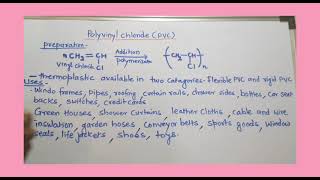 Polyvinyl chloride (PVC)
preparation:-
nCH2=CH Addition (CH2-CH)n
Cl polymerization Cl
vinyl chloride
- thermoplastic available in two categories- flexible PVC and rigid PVC
Uses:-
- Windo frames, Pipes, roofing, curtain rails, drawer sides, bottles, car seat
backs, switches, credit cards
Green Houses, shower curtains leather cloths, cable and wire
insulation, garden hoses conveyor belts, sports goods, window
seals, life jackets, shoes, toys.